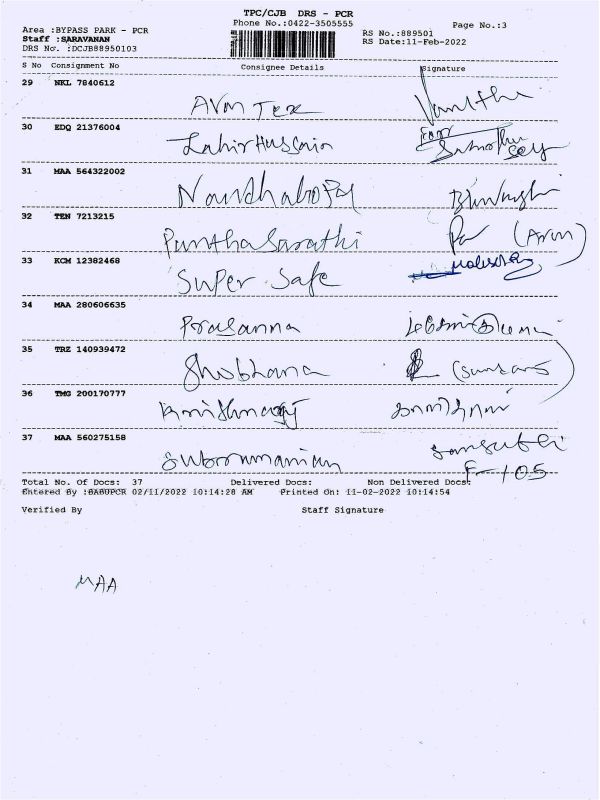 TPC/CJB DRS - PCR
Phone No.:0422-3505555
Page No.:3
Area :BYPASS PARK - PCR
Staff :SARAVANAN
DRS No. :DCJB88950103
RS No.:889501
RS Date:11-Feb-2022
S No Consignment No Consignee Details Signature
29 NKL 7840612
Arun Tex Vanithi
30 EDQ 21376004
Zahir Hussain
31 MAA 564322002
Nandhabopal
32 TEN 7213215
Punthasarathi (Arun)
33 KCM 12382468
Super Safe
34 MAA 280606635
Prasanna
35 TRZ 140939472
Shobhana
36 TMG 200170777
37 MAA 560275158
Subramanian
F-105
Total No. Of Docs: 37 Delivered Docs: Non Delivered Docs:
Entered By :BABUPCR 02/11/2022 10:14:28 AM Printed On: 11-02-2022 10:14:54
Verified By Staff Signature
MAA